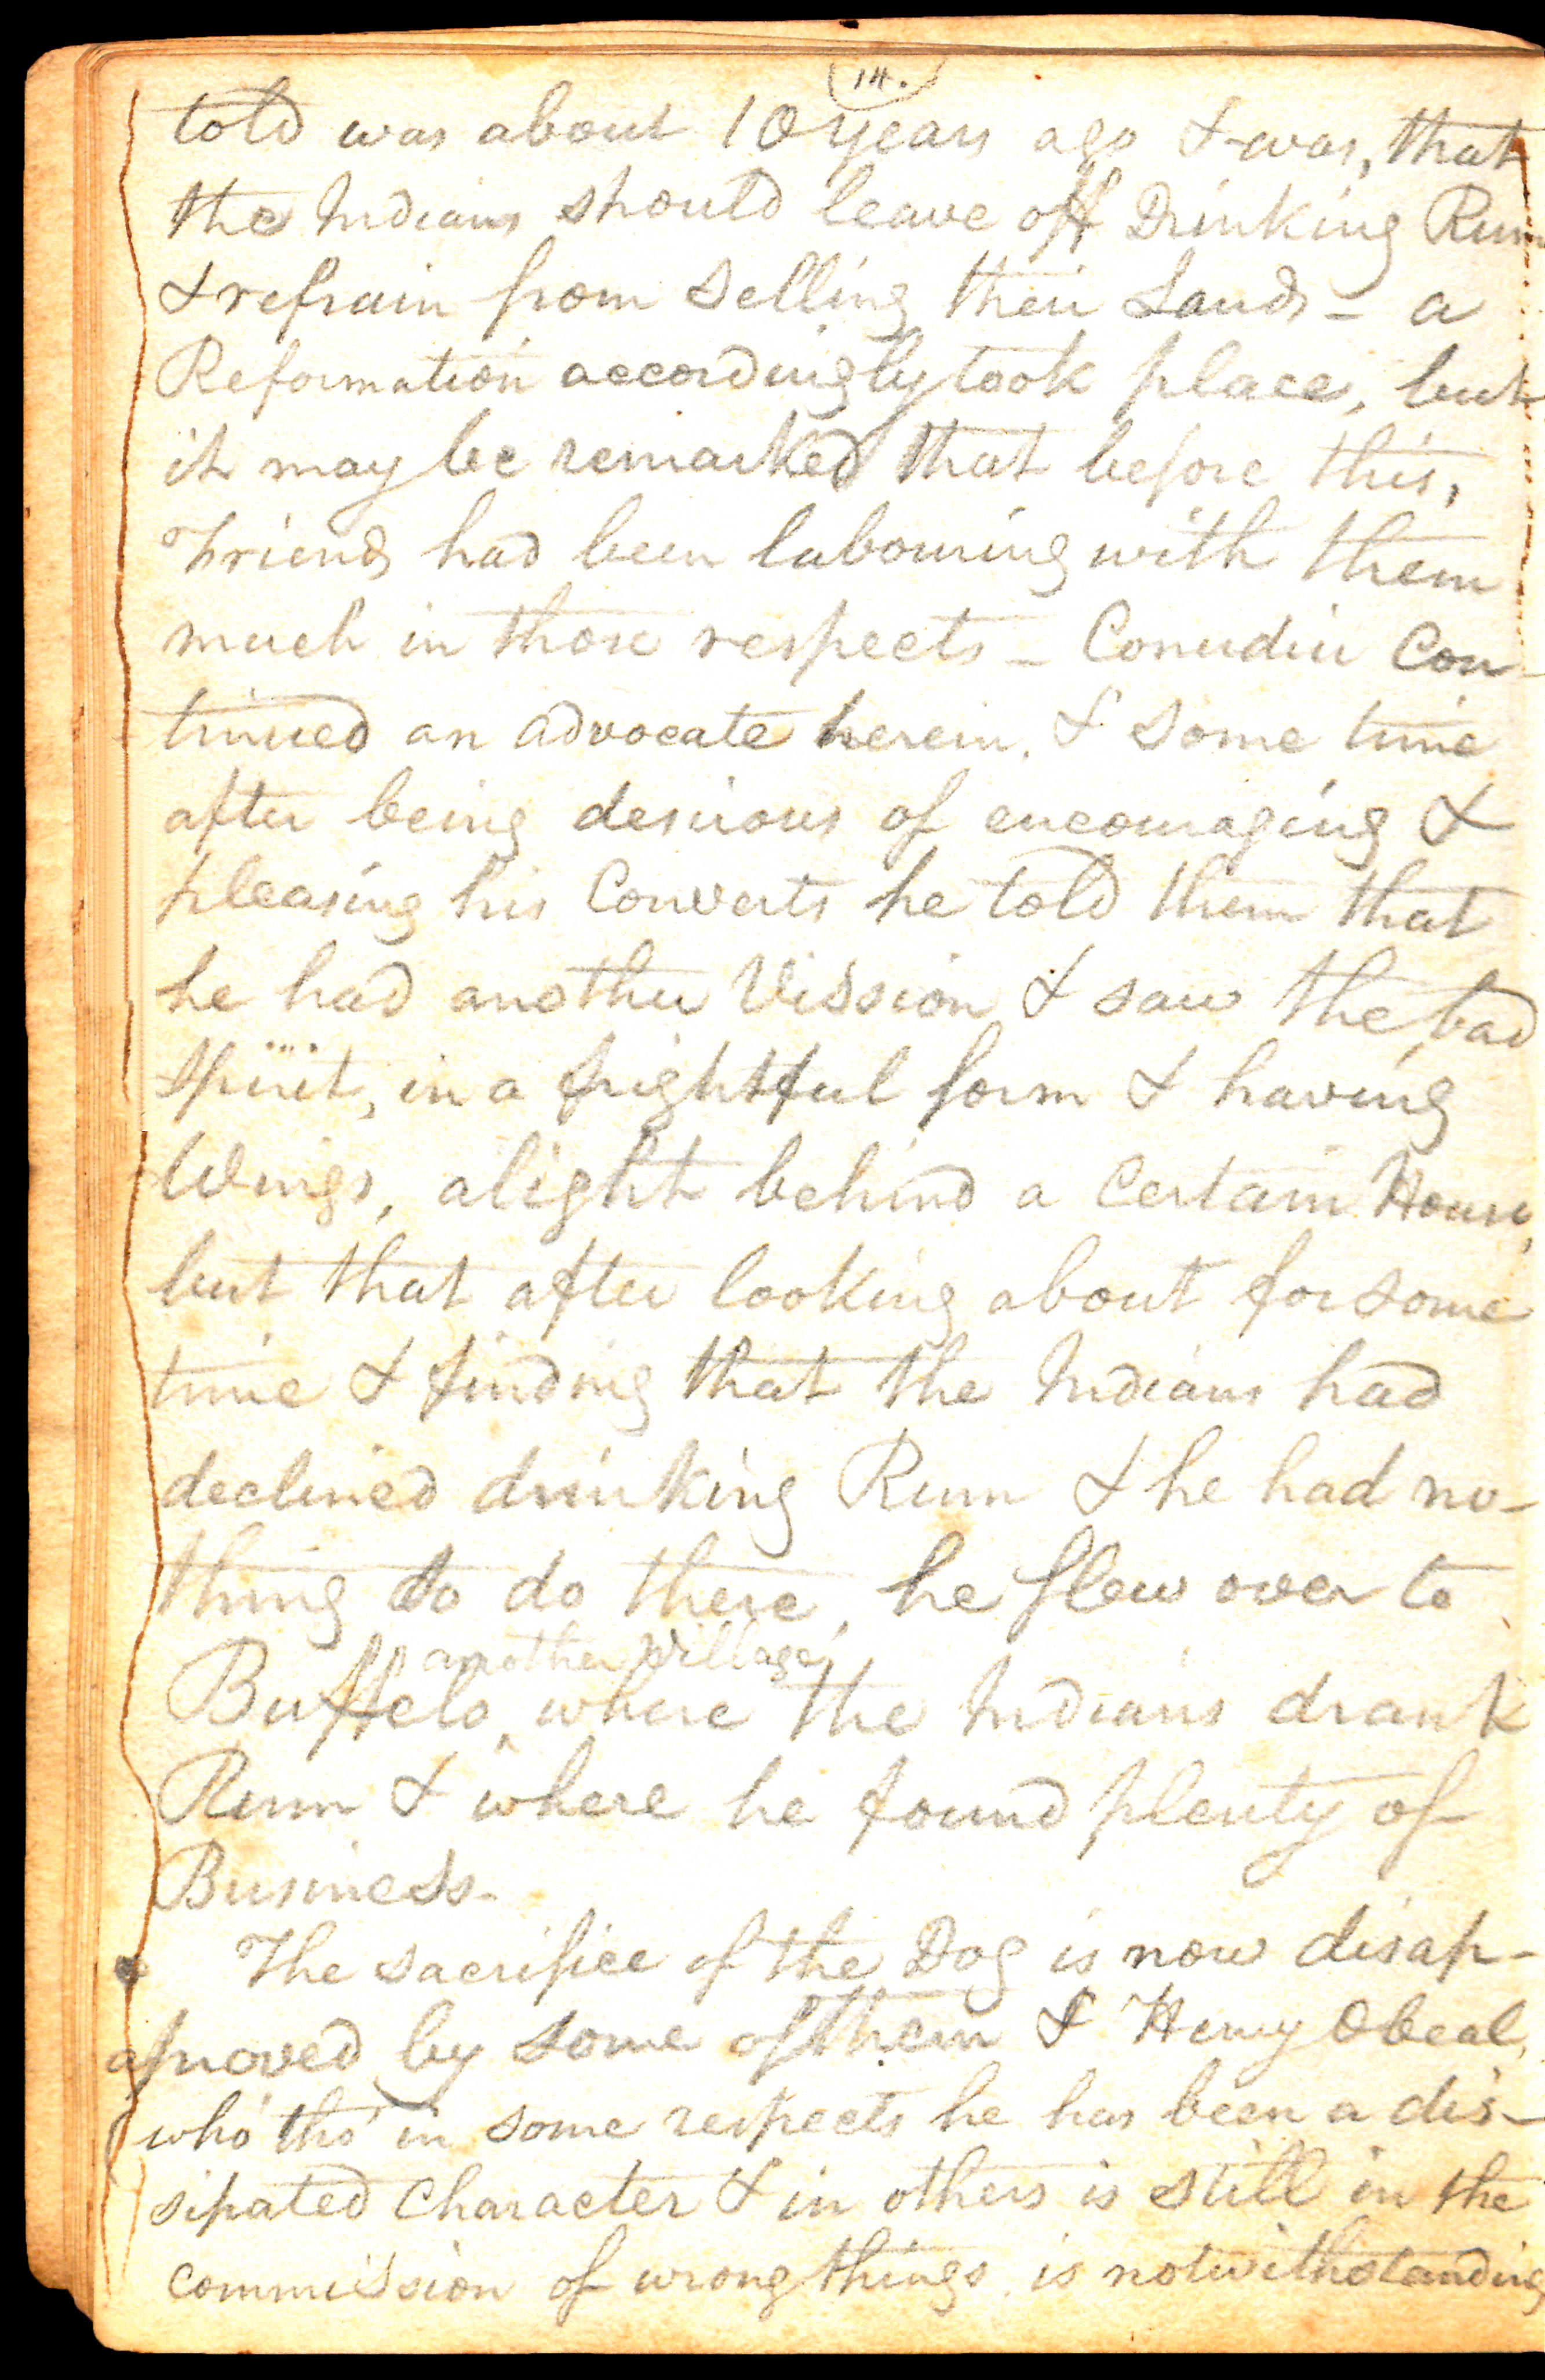 14.
told was about 10 years ago & was, that
the Indians should leave off Drinking Rum
& refrain from Selling their Lands - a
Reformation accordingly took place, but
it may be remarked that before this,
Friends had been labouring with them
much in those respects - Conudiu Con-
tinued an advocate herein. & some time
after being desirous of encouraging &
pleasing his Converts he told them that
he had another Vission & saw the bad
Spirit, in a frightful form & having
Wings, alight behind a Certain House,
but that after looking about for some
time & finding that the Indians had
declined drinking Rum & he had no-
thing to do there, he flew over to
another Village,
Buffelo ^ where the Indians drank
Rum & where he found plenty of
Business-
The sacrifice of the Dog is now disap-
proved by some of them & Henry Obeal,
(who tho' in some respects he has been a dis-
sipated Character & in others is still in the
commission of wrong things is notwithstanding